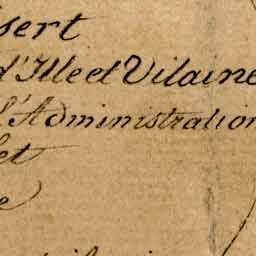 sert
d'Ille et Vilaine
l'Administration
et
e